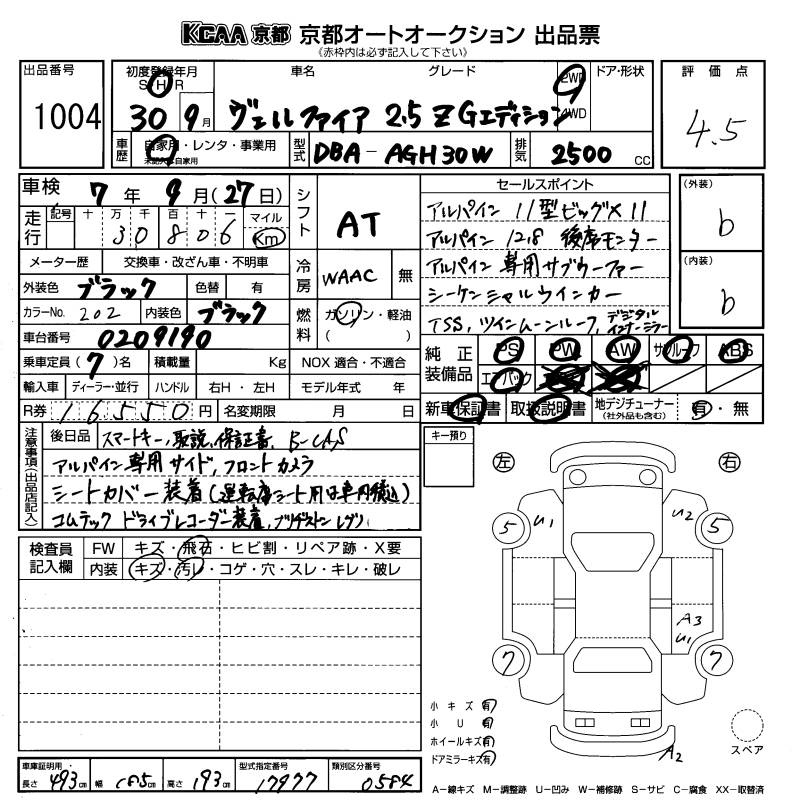 KCAA 京都 京都オートオークション 出品票
《赤枠内は必ず記入して下さい》
出品番号
1004
初度登録年月
S H R
30 9月
車名 グレード
ヴェルファイア 2.5 Z Gエディション
2WD
4WD
ドア・形状
評価点
4.5
車歴
自家用・レンタ・事業用
型式
DBA-AGH30W
排気
2500 CC
車検 7年 9月(27日)
走行
記号 十 万 千 百 十 一 マイル
3 0 8 0 6 Km
メーター歴 交換車・改ざん車・不明車
外装色 ブラック 色替 有
カラーNo. 202 内装色 ブラック
車台番号 0209190
乗車定員(7)名 積載量 Kg
輸入車 ディーラー・並行 ハンドル 右H・左H
R券 16550円 名変期限 月 日
シフト AT
冷房 WAAC 無
燃料 ガソリン・軽油
( )
NOX 適合・不適合
モデル年式 年
セールスポイント
アルパイン 11型ビッグX 11
アルパイン 12.8 後席モニター
アルパイン 専用サブウーファー
シーケンシャルウインカー
TSS, ツインムーンルーフ, デジタルインナーミラー
(外装)
b
(内装)
b
純正装備品
PS PW AW サンルーフ ABS
エアバック
新車保証書 取扱説明書 地デジチューナー(社外品も含む) 有・無
注意事項(出品店記入)
後日品 スマートキー, 取説, 保証書, B-CAS
アルパイン専用サイド, フロントカメラ
シートカバー装着(運転席シート用は車内積込)
コムテック ドライブレコーダー装着, ブリヂストン レグノ
キー預り
検査員記入欄
FW キズ・飛石・ヒビ割・リペア跡・X要
内装 キズ・汚れ・コゲ・穴・スレ・キレ・破レ
左 右
5 U1 U2 5
A3
U1
7 7
A2
小キズ 有
小U 有
ホイールキズ 有
ドアミラーキズ 有
スペア
車庫証明用・
長さ 493cm 幅 185cm 高さ 193cm
型式指定番号 17977
類別区分番号 0584
A-線キズ M-調整跡 U-凹み W-補修跡 S-サビ C-腐食 XX-取替済